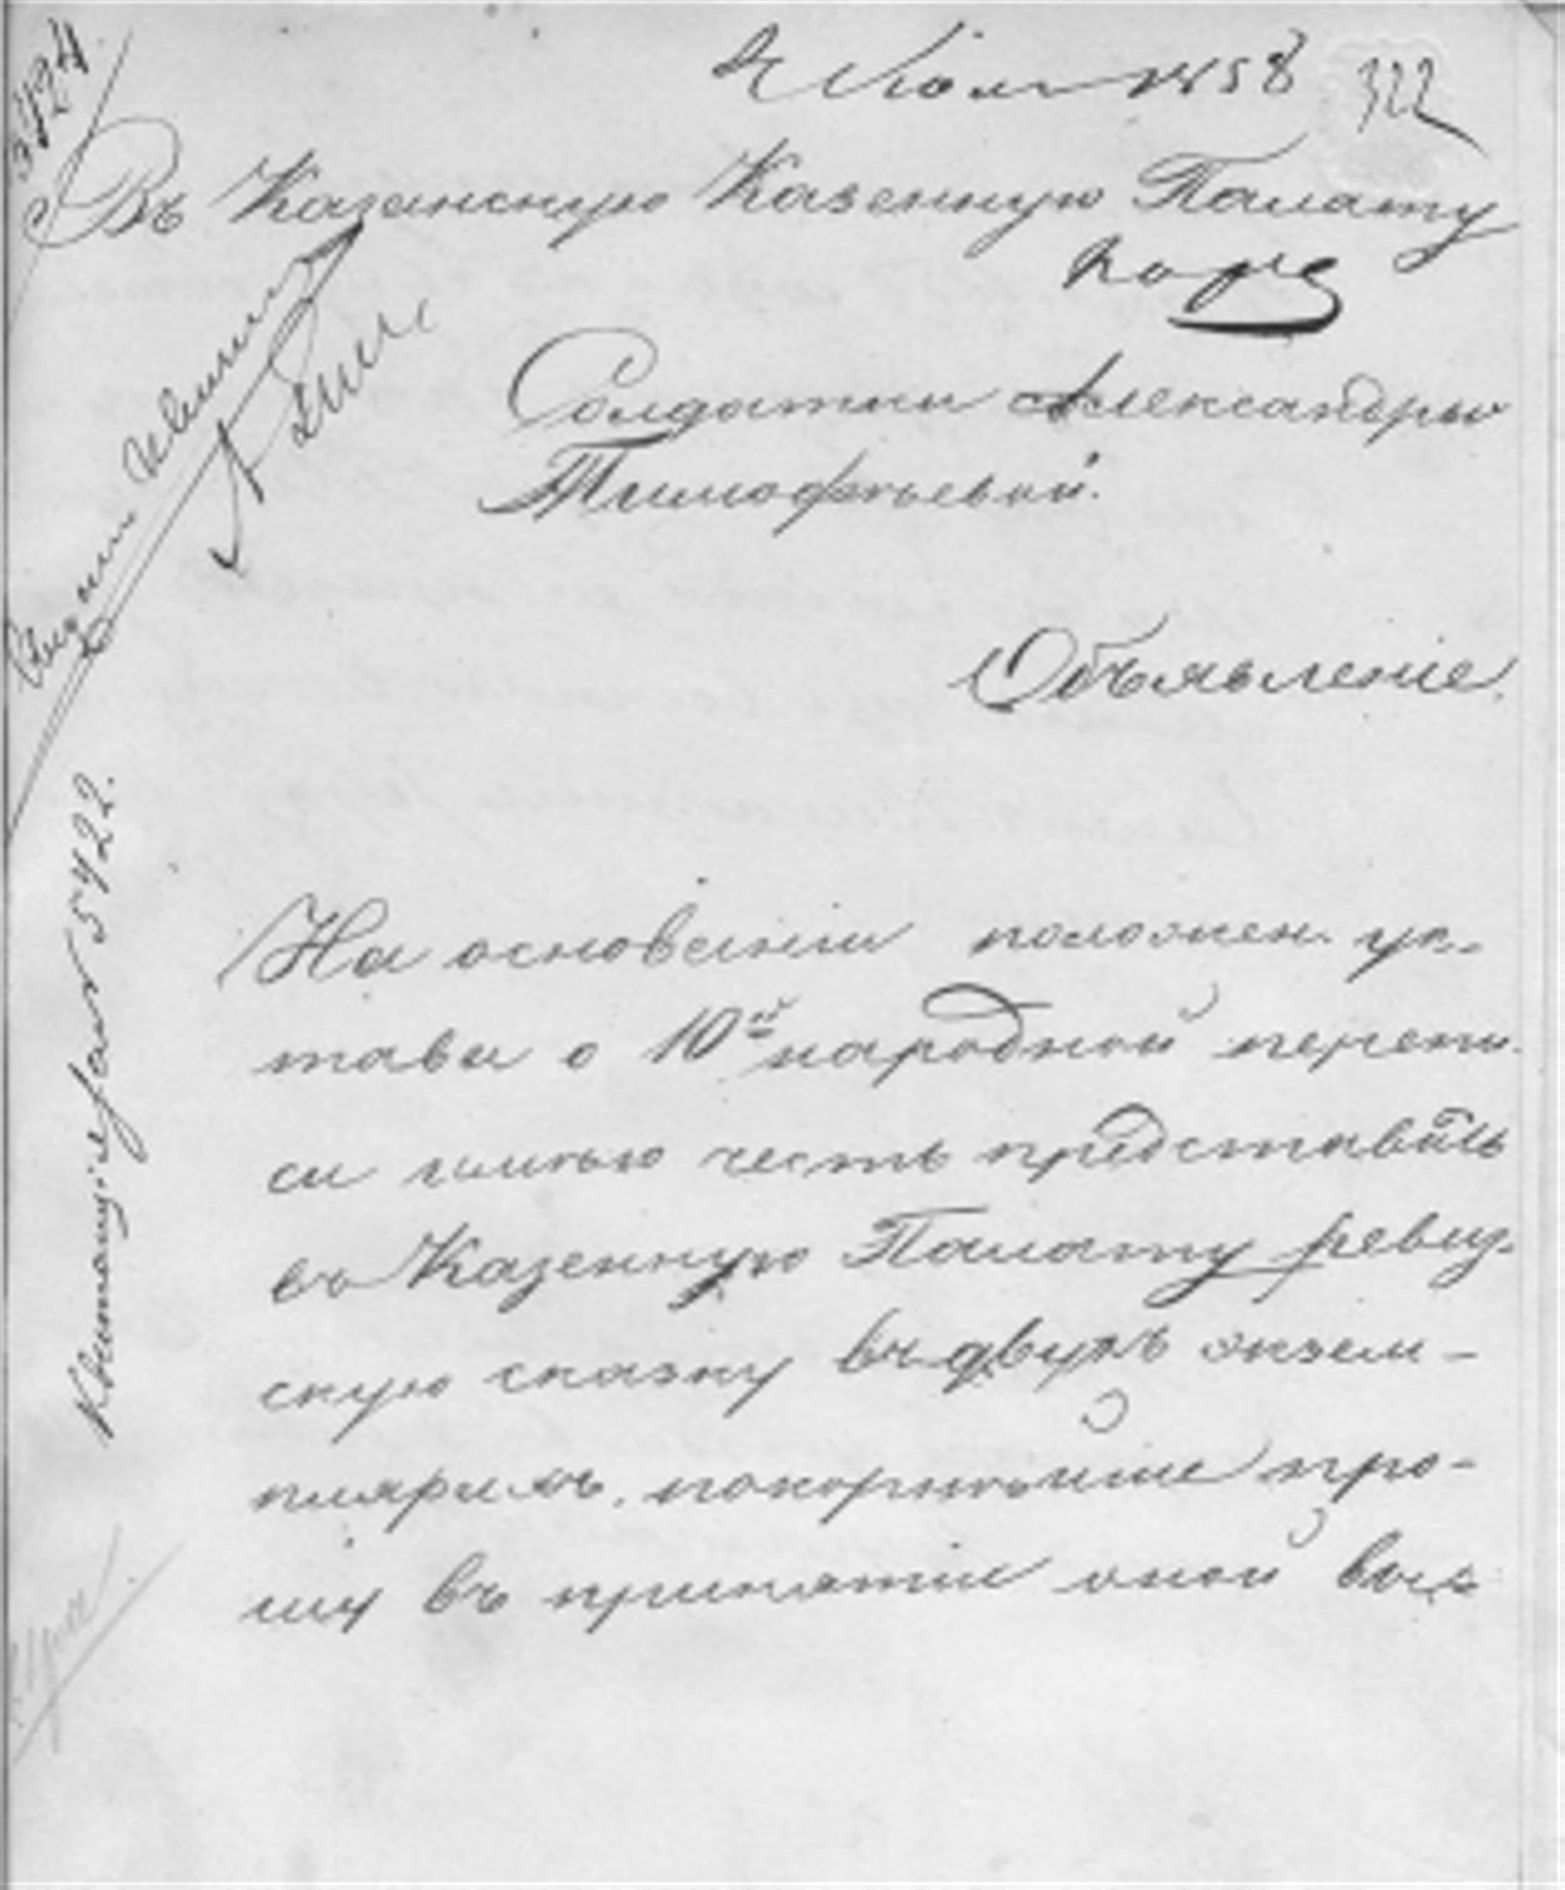 Іюля 1858
322
Въ Казанскую Казенную Палату
Солдатки Александры
Тимофѣевой.
Объявленіе.
На основаніи положен. ус-
тава о 10й народной перепи-
си имѣю честь представить
въ Казенную Палату ревиз-
скую сказку въ двухъ экзем-
плярахъ, покорнѣйше про-
шу въ принятіи оной
5422.